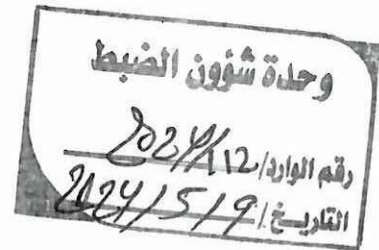 وحدة شؤون الضبط
رقم الوارد/ 2024/112
التاريخ/ 2024/5/9